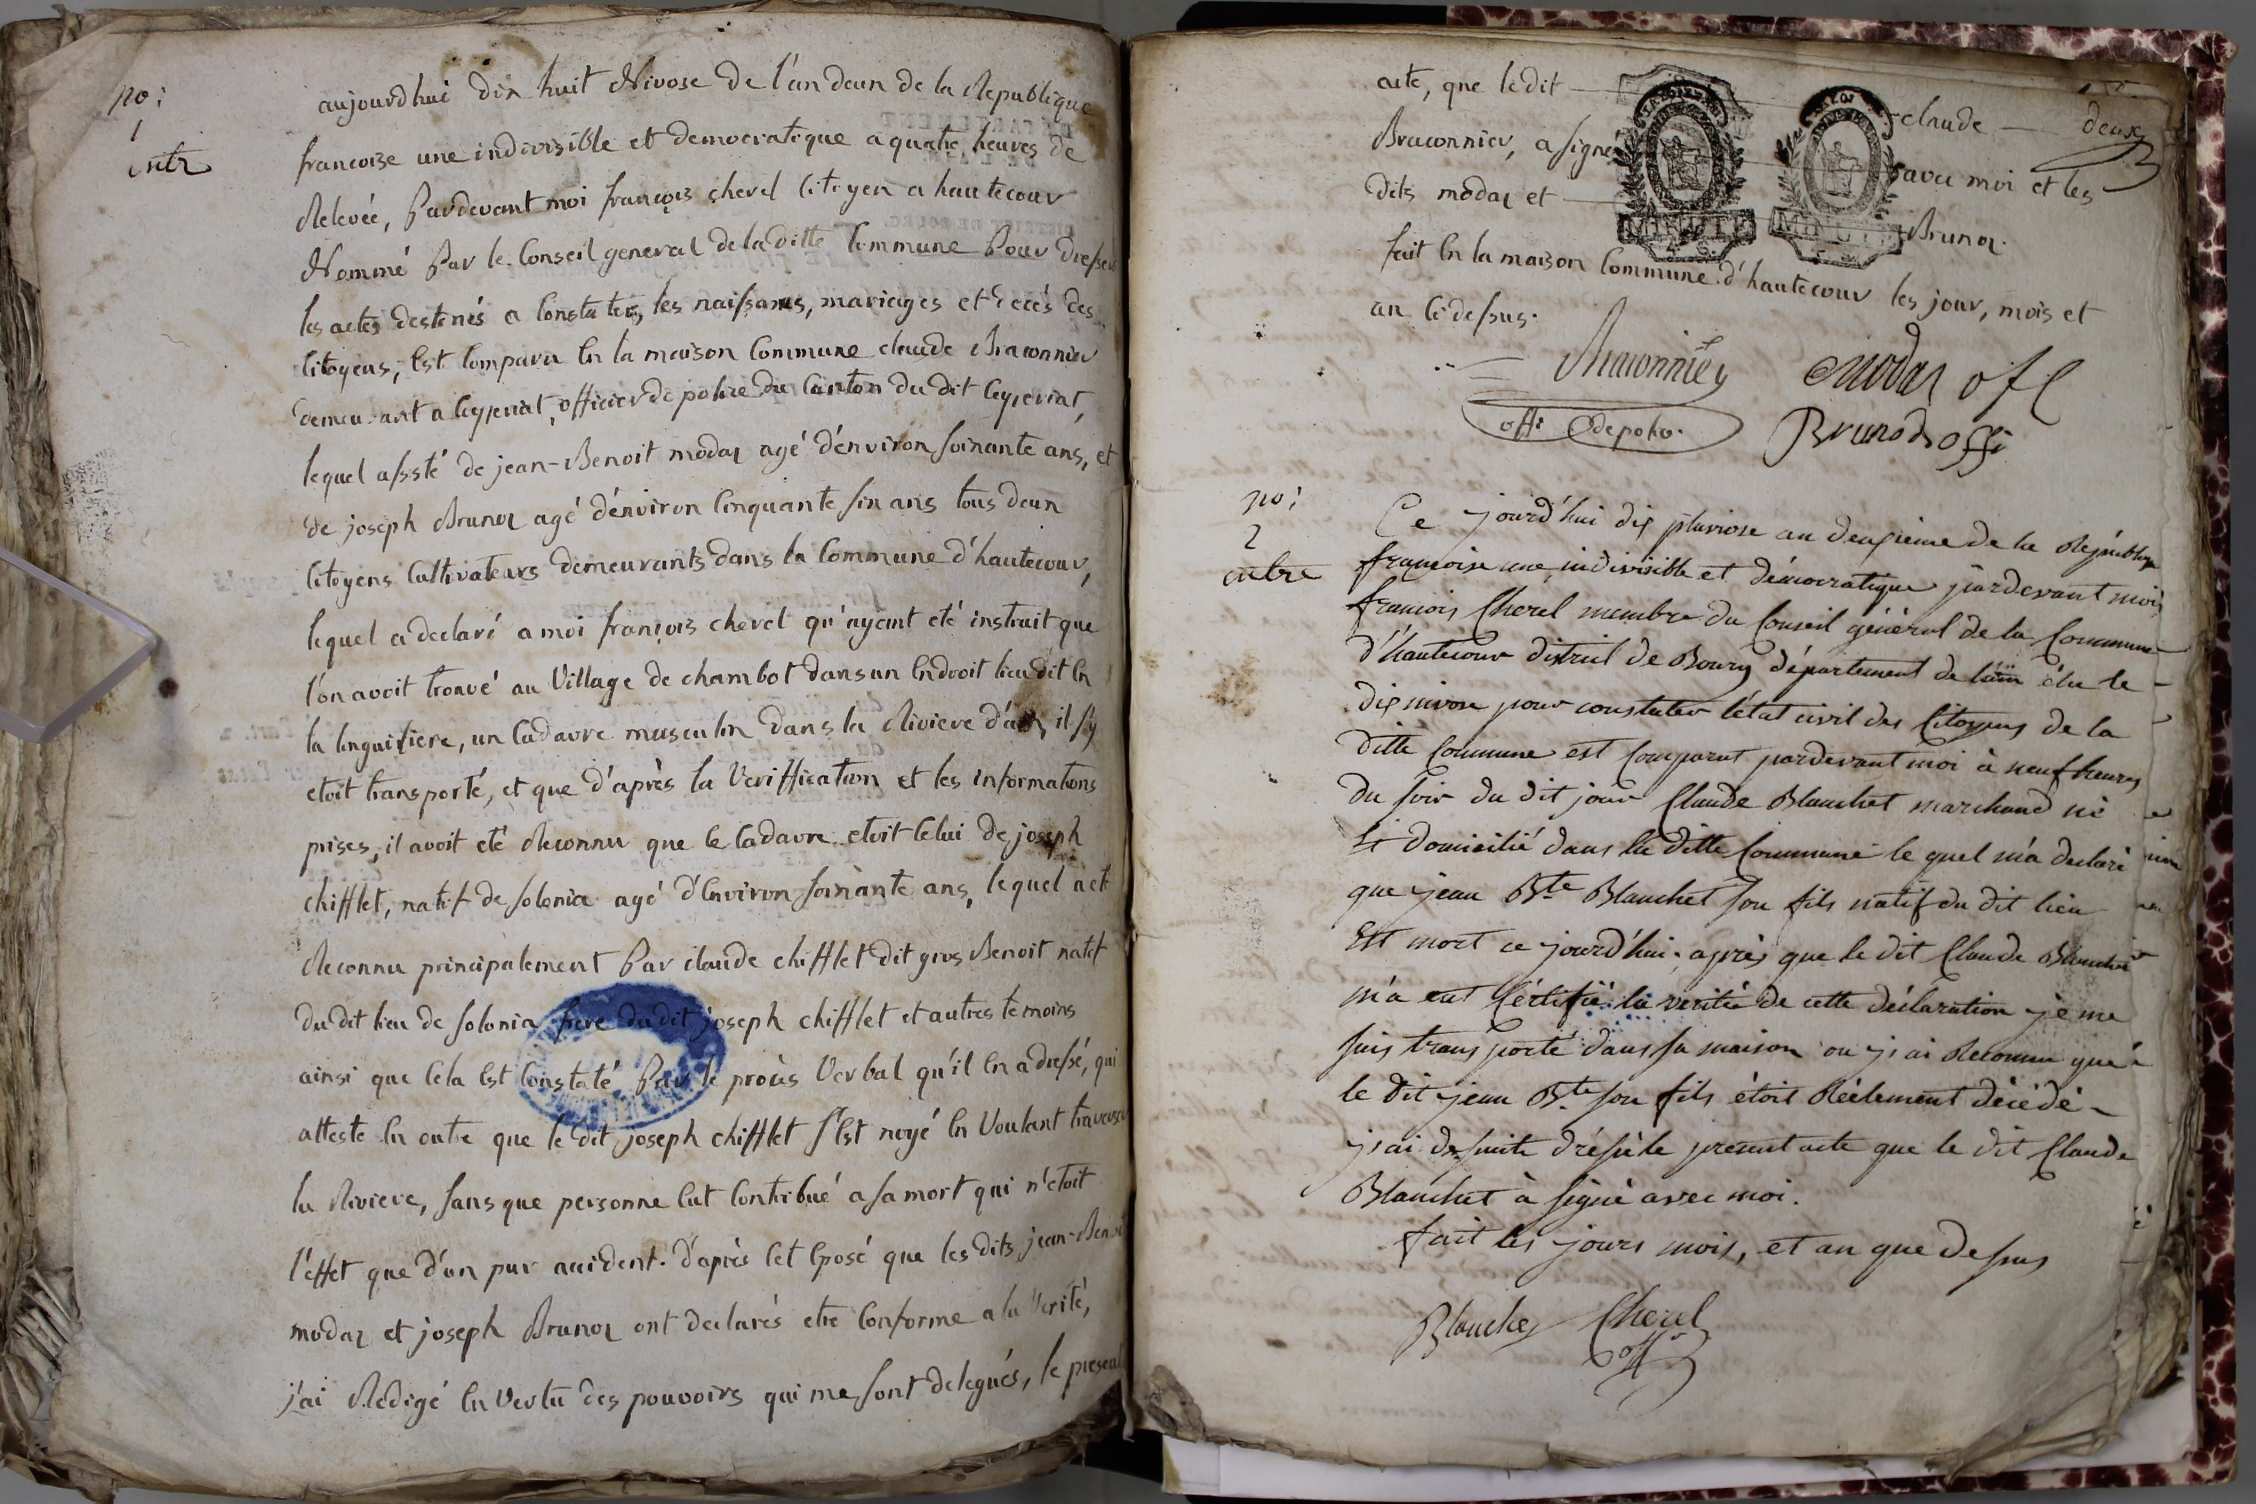 no:
1
entr
aujourdhui dix huit Nivose de l'an deux de la Republique
francoise une indivisible et democratique a quatre heures de
Relevée, Pardevant moi françois cherel Citoyen a hautecour
Nommé Par le Conseil general de la ditte Commune Pour dresser
les actes destinés a Constater les naissances, mariages et décès des
Citoyens, Est Comparu En la maison Commune claude Braconnier
demeurant a Ceyzeriat, officier de police du Canton du dit Ceyzeriat,
lequel assté de jean-Benoit modaz agé d'énviron soixante ans, et
de joseph Brunoz agé d'énviron Cinquante six ans tous deux
Citoyens Cultivateurs demeurants dans la Commune d'hautecour,
lequel a declaré a moi françois cherel qu'ayant été instruit que
l'on avoit trouvé au Village de chambot dans un Endroit lieu dit En
la, un Cadavre masculin dans la Riviere d'ain, il s'y
etoit transporté, et que d'après la Veriffication et les informations
prises, il avoit été Reconnu que le Cadavre etoit Celui de joseph
chifflet, natif de solonia agé d'Environ soixante ans, lequel a eté
Reconnu principalement Par claude chifflet dit gros Benoit natif
du dit lieu de solonia frere du dit joseph chifflet et autres temoins
ainsi que Cela Est Constaté Par le procès Verbal qu'il En a dressé, qui
atteste En outre que le dit joseph chifflet s'Est noyé En Voulant traverser
la Riviere, sans que personne Eut Contribué a sa mort qui n'étoit
l'éffet que d'un pur accident. d'après Cet Eposé que les dits jean-Benoit
modaz et joseph Brunoz ont declarés etre Conforme a la Verité,
j'ai Redigé En Vertu des pouvoirs qui me sont delegués, le present
acte, que le dit claude deux
Braconnier, a signé avec moi et les
dits modaz et Brunoz.
MINUTE MINUTE
fait En la maison Commune d'hautecour les jour, mois et
an Ci dessus.
Braconnier modaz off
offr de police Brunod offi
no:
2
entre
Ce jourd'hui dix pluviose an deuxieme de la Républiq
françoise une, indivisible et démocratique pardevant moi
francois Cherel membre du Conseil général de la Commune
d'hautecour district de Bourg département de l'ain élu le
dix nivose pour constater l'état civil des Citoyens de la
ditte Commune est comparut pardevant moi à neuf heures
du soir du dit jour Claude Blanchet marchand né
et domicilié dans la ditte Commune le quel m'a declaré
que jean Bte Blanchet son fils natif du dit lieu
Est mort ce jourd'hui; après que le dit Claude Blanchet
m'a eut Cértifié la verité de cette déclaration je me
suis transporté dans sa maison ou j'ai Reconnu que
le dit jean Bte son fils étoit Réelement décédé
j'ai de suite dréssé le present acte que le dit Claude
Blanchet à signé avec moi.
fait les jours mois, et an que dessus
Blanchet Cherel
off